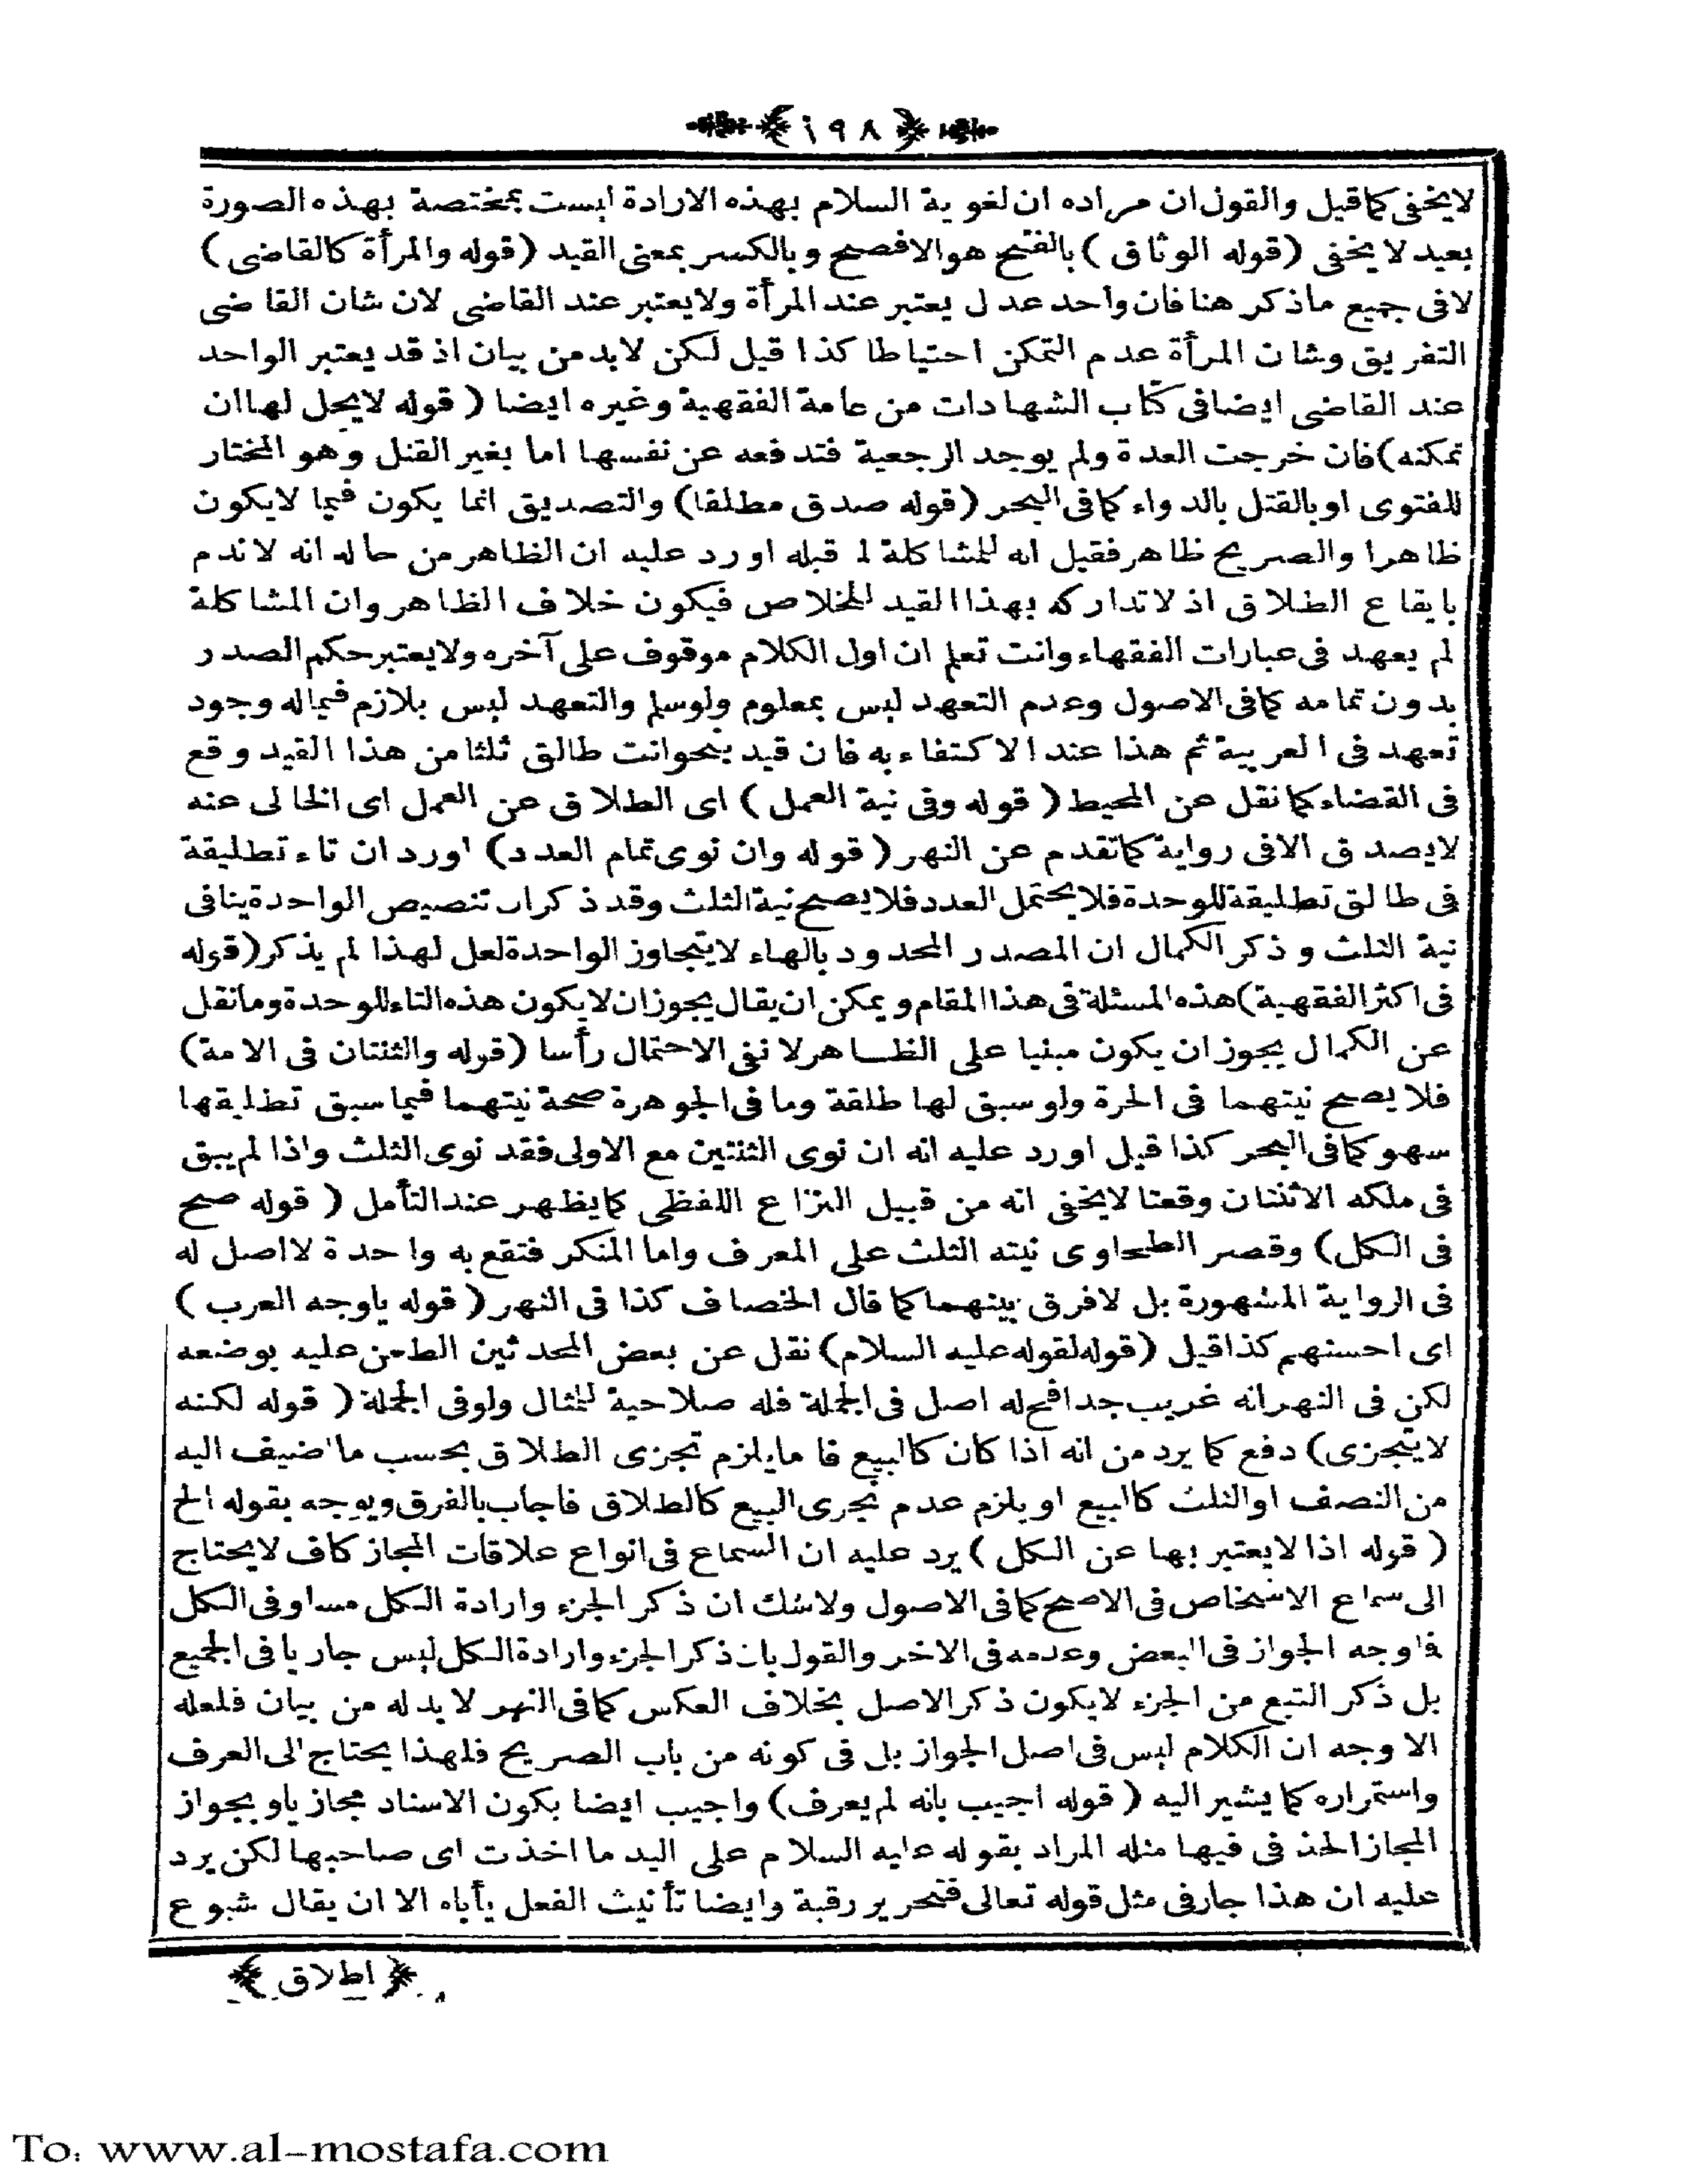 ١٩٨
لا يخفى كما قيل والقول ان مراده ان لغوية السلام بهذه الارادة ليست بمختصة بهذه الصورة
بعيد لا يخفى (قوله الوثاق) بالفتح هو الافصح وبالكسر بمعنى القيد (قوله والمرأة كالقاضى)
لا فى جميع ما ذكر هنا فان واحد عدل يعتبر عند المرأة ولا يعتبر عند القاضى لان شان القاضى
التفريق وشان المرأة عدم التمكن احتياطا كذا قيل لكن لا بد من بيان اذ قد يعتبر الواحد
عند القاضى ايضا فى كتاب الشهادات من عامة الفقهية وغيره ايضا (قوله لا يحل لها ان
تمكنه) فان خرجت العدة ولم يوجد الرجعية فتدفعه عن نفسها اما بغير القتل وهو المختار
للفتوى او بالقتل بالدواء كما فى البحر (قوله صدق مطلقا) والتصديق انما يكون فيما لا يكون
ظاهرا والصريح ظاهر فقيل انه للمشاكلة لما قبله اورد عليه ان الظاهر من حاله انه لا ندم
بايقاع الطلاق اذ لا تداركه بهذا القيد للخلاص فيكون خلاف الظاهر وان المشاكلة
لم يعهد فى عبارات الفقهاء وانت تعلم ان اول الكلام موقوف على آخره ولا يعتبر حكم الصدر
بدون تمامه كما فى الاصول وعدم التعهد ليس بمعلوم ولو سلم والتعهد ليس بلازم فيما له وجود
تعهد فى العربية ثم هذا عند الاكتفاء به فان قيد بنحو انت طالق ثلثا من هذا القيد وقع
فى القضاء كما نقل عن المحيط (قوله وفى نية العمل) اى الطلاق عن العمل اى الخالى عنه
لا يصدق الا فى رواية كما تقدم عن النهر (قوله وان نوى تمام العدد) اورد ان تاء تطليقة
فى طالق تطليقة للوحدة فلا يحتمل العدد فلا يصح نية الثلث وقد ذكر ان تنصيص الواحدة ينافى
نية الثلث وذكر الكمال ان المصدر المحدود بالهاء لا يتجاوز الواحدة لعل لهذا لم يذكر (قوله
فى اكثر الفقهية) هذه المسئلة فى هذا المقام ويمكن ان يقال يجوز ان لا يكون هذه التاء للوحدة وما نقل
عن الكمال يجوز ان يكون مبنيا على الظاهر لا نفى الاحتمال رأسا (قوله والثنتان فى الامة)
فلا يصح نيتهما فى الحرة ولو سبق لها طلقة وما فى الجوهرة صحة نيتهما فيما سبق تطليقها
سهو كما فى البحر كذا قيل اورد عليه انه ان نوى الثنتين مع الاولى فقد نوى الثلث واذا لم يبق
فى ملكه الا ثنتان وقعتا لا يخفى انه من قبيل النزاع اللفظى كما يظهر عند التأمل (قوله صح
فى الكل) وقصر الطحاوى نيته الثلث على المعرف واما المنكر فتقع به واحدة لا اصل له
فى الرواية المشهورة بل لا فرق بينهما كما قال الخصاف كذا فى النهر (قوله ياوجه العرب)
اى احسنهم كذا قيل (قوله لقوله عليه السلام) نقل عن بعض المحدثين الطعن عليه بوضعه
لكن فى النهر انه غريب جدا فح له اصل فى الجملة فله صلاحية للمثال ولو فى الجملة (قوله لكنه
لا يتجزى) دفع كما يرد من انه اذا كان كالبيع فاما يلزم تجزى الطلاق بحسب ما اضيف اليه
من النصف او الثلث كالبيع او يلزم عدم تجزى البيع كالطلاق فاجاب بالفرق ويوجه بقوله الخ
(قوله اذا لا يعتبر بها عن الكل) يرد عليه ان السماع فى انواع علاقات المجاز كاف لا يحتاج
الى سماع الاشخاص فى الاصح كما فى الاصول ولا شك ان ذكر الجزء وارادة الكل مساو فى الكل
فاوجه الجواز فى البعض وعدمه فى الاخر والقول بان ذكر الجزء وارادة الكل ليس جاريا فى الجميع
بل ذكر التبع من الجزء لا يكون ذكر الاصل بخلاف العكس كما فى النهر لا بد له من بيان فلعله
الاوجه ان الكلام ليس فى اصل الجواز بل فى كونه من باب الصريح فلهذا يحتاج الى العرف
واستمراره كما يشير اليه (قوله اجيب بانه لم يعرف) واجيب ايضا بكون الاسناد مجازيا وبجواز
المجاز الحذفى فيها مثله المراد بقوله عليه السلام على اليد ما اخذت اى صاحبها لكن يرد
عليه ان هذا جار فى مثل قوله تعالى فتحرير رقبة وايضا تأنيث الفعل يأباه الا ان يقال شيوع
اطلاق
To: www.al-mostafa.com